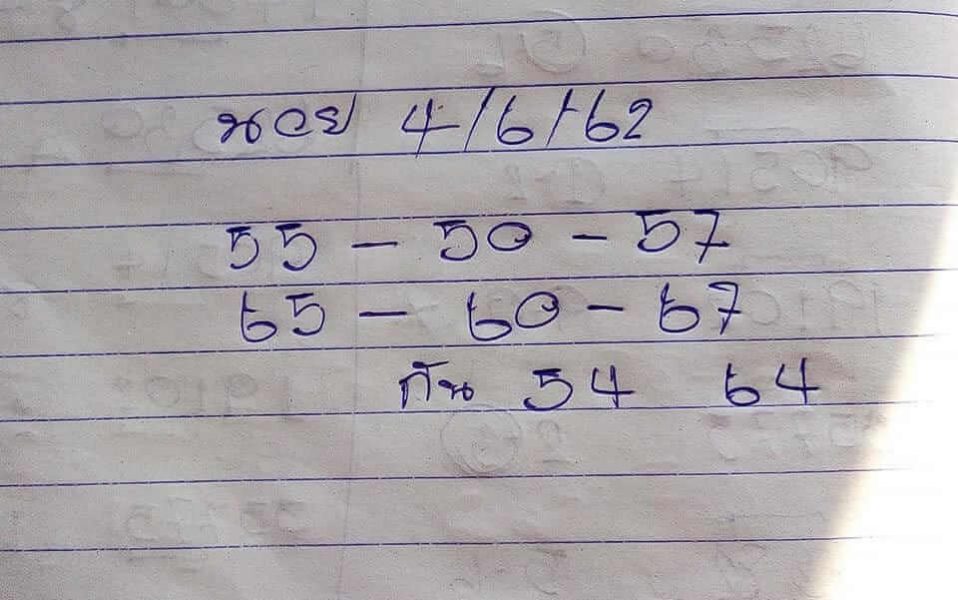 ฮอย 4/6/62
55 - 50 - 57
65 - 60 - 67
กัน 54 64